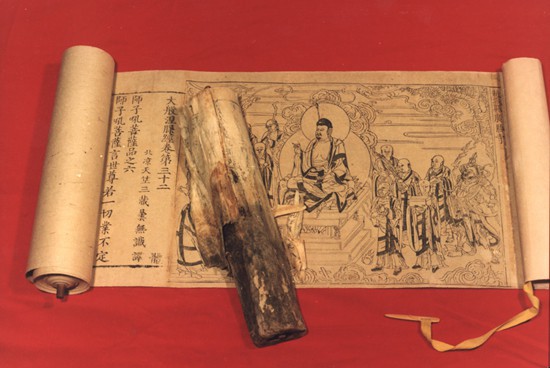 大般涅槃經卷第三十二 體
北涼天竺三藏曇無讖譯
師子吼菩薩品之六
師子吼菩薩言世尊若一切業不定